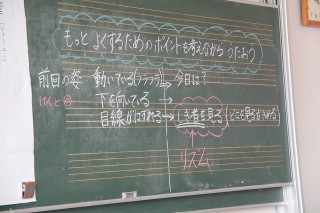 もっと よくするための ポイントを考えながら うたおう
前回の姿 動いている(フラフラ) → 今日は?
下を向いている →
目線がはずれる → しき者を見る (どこを見るかきめる)
リズム